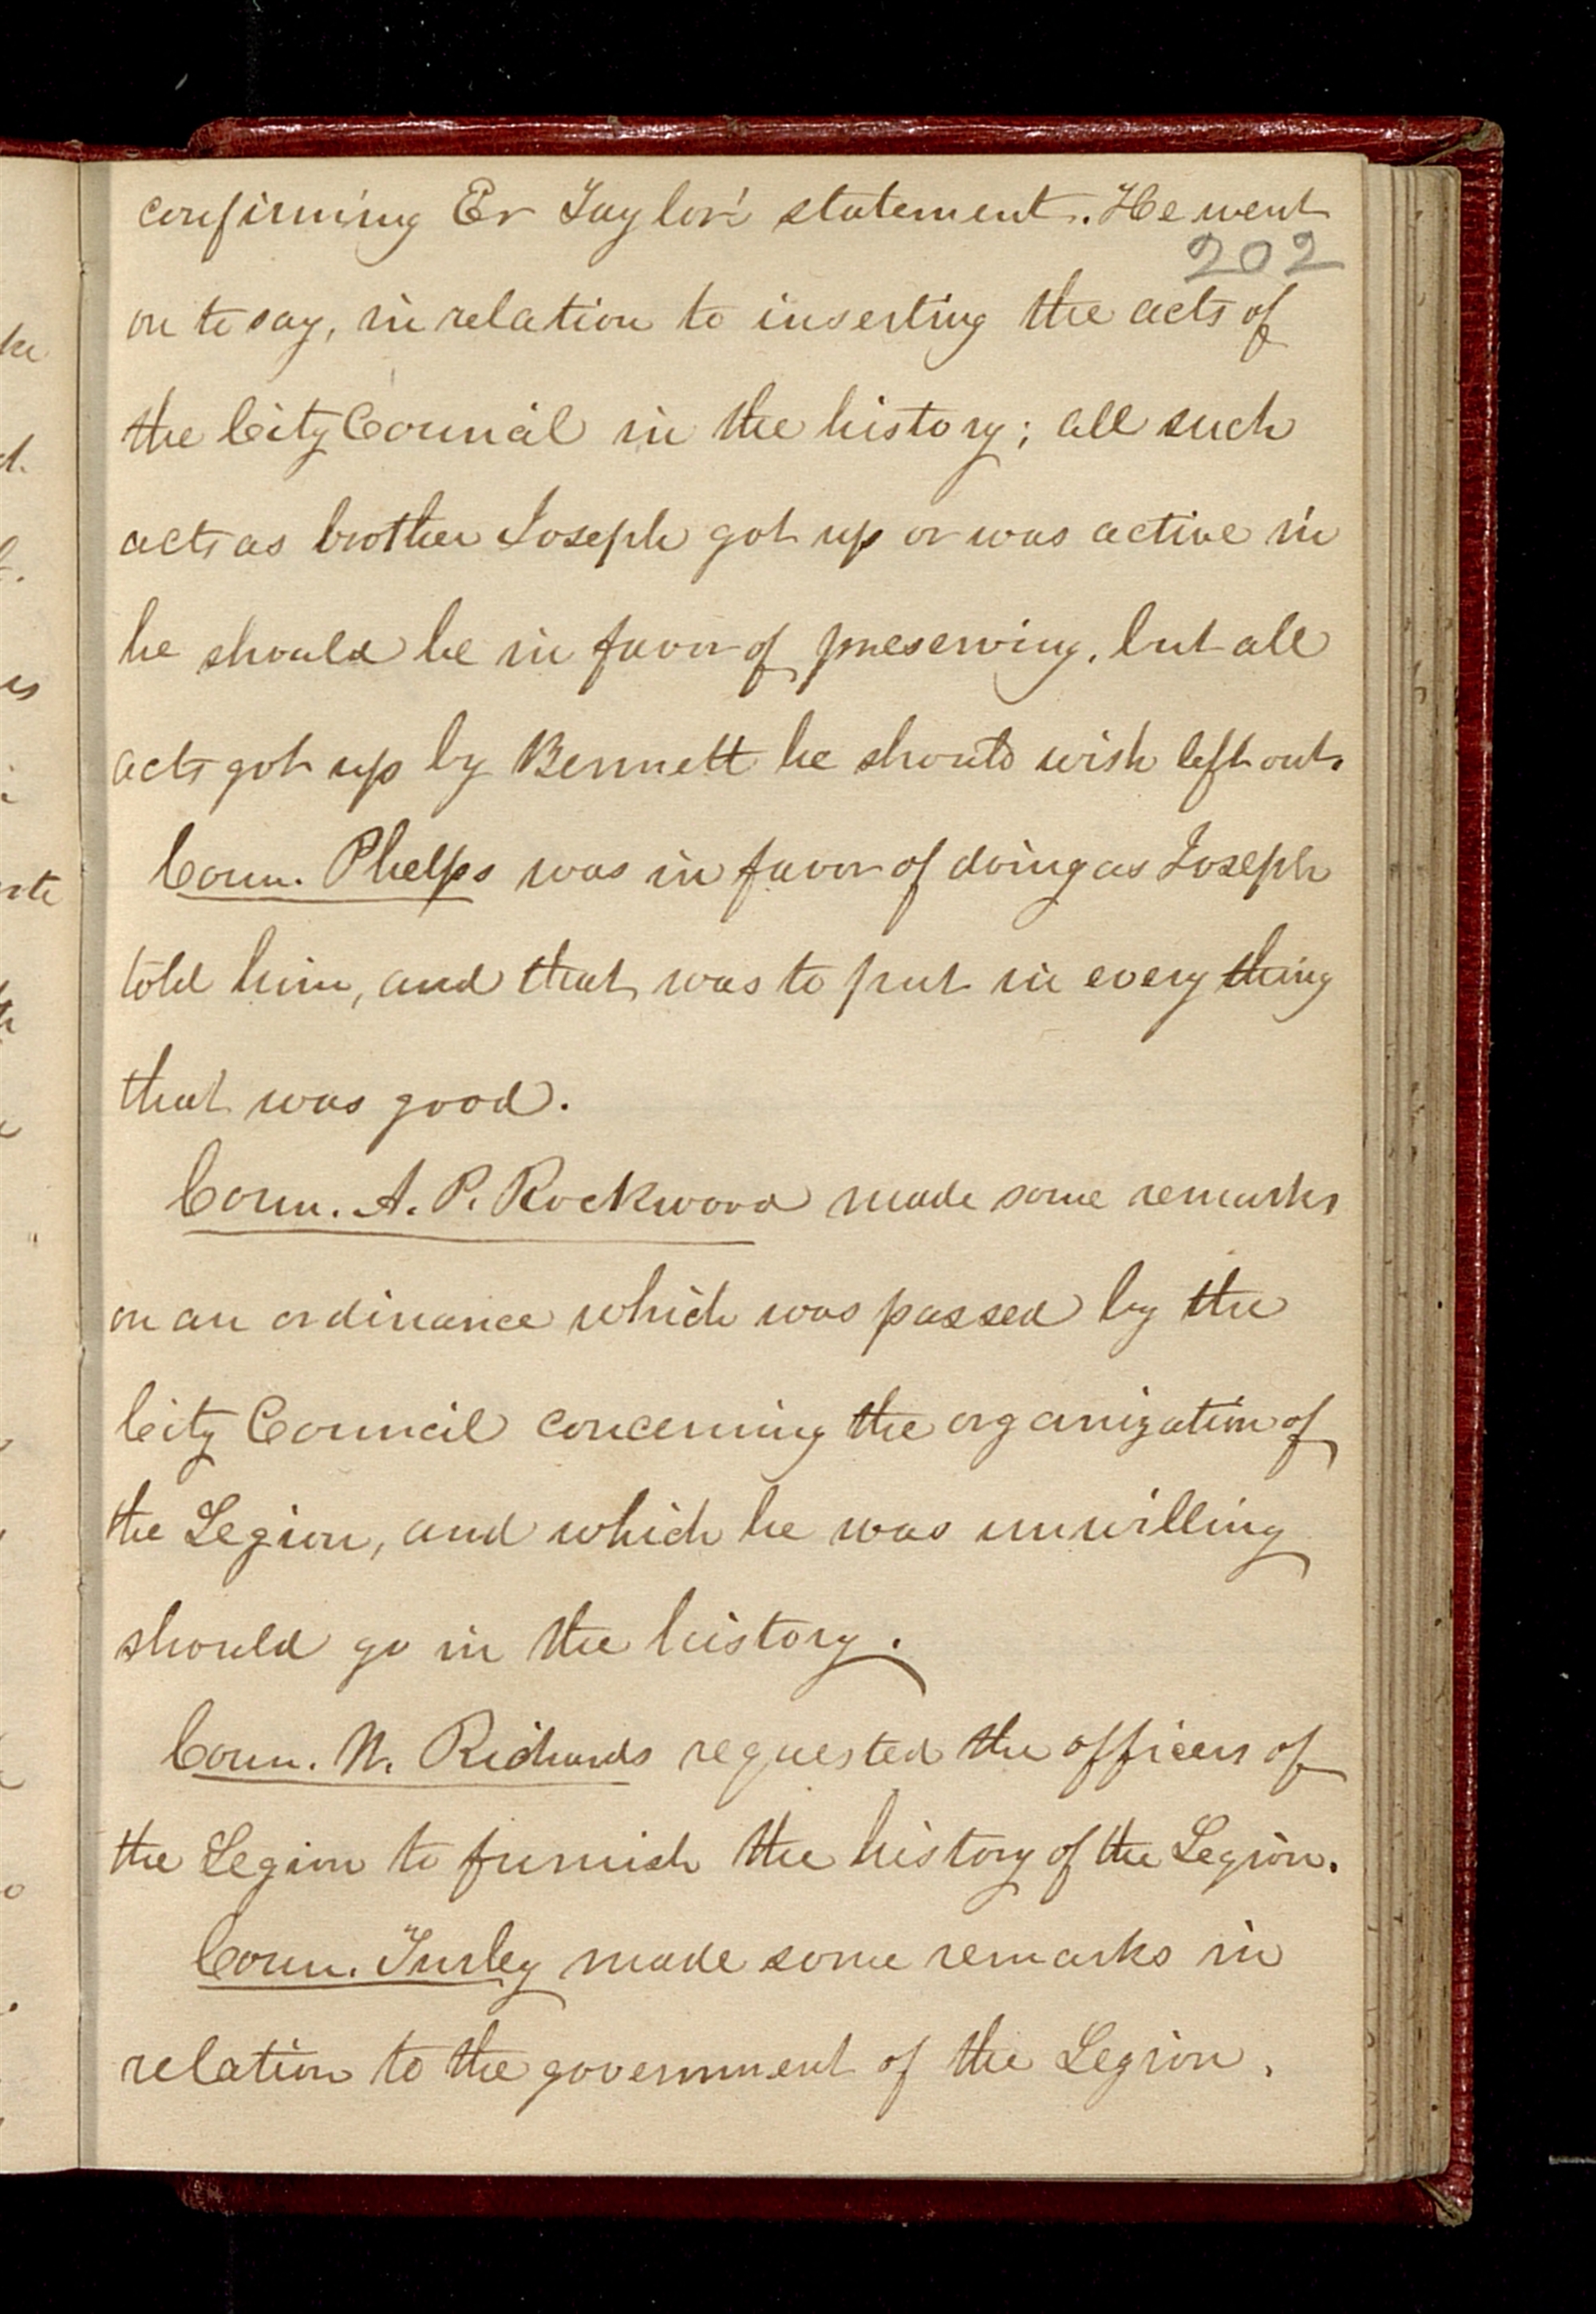 confirming Er Taylor's statement. He went
202
on to say, in relation to inserting the acts of
the City Council in the history; all such
acts as brother Joseph got up or was active in
he should be in favor of preserving, but all
acts got up by Bennett he should wish left out.
Coun. Phelps was in favor of doing as Joseph
told him, and that was to put in every thing
that was good.
Coun. A. P. Rockwood made some remarks
on an ordinance which was passed by the
City Council concerning the organization of
the Legion, and which he was unwilling
should go in the history.
Coun. W. Richards requested the officers of
the Legion to furnish the history of the Legion.
Coun. Turley made some remarks in
relation to the government of the Legion.